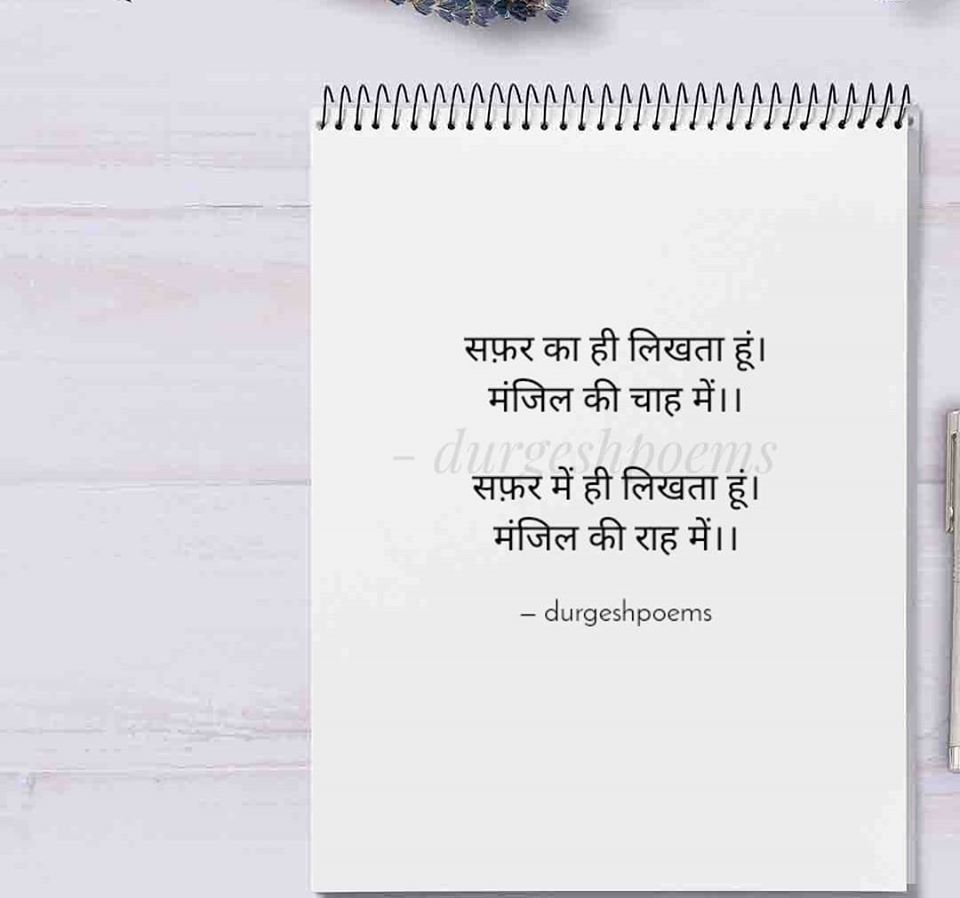 सफ़र का ही लिखता हूं।
मंजिल की चाह में।।
– durgeshpoems
सफ़र में ही लिखता हूं।
मंजिल की राह में।।
– durgeshpoems